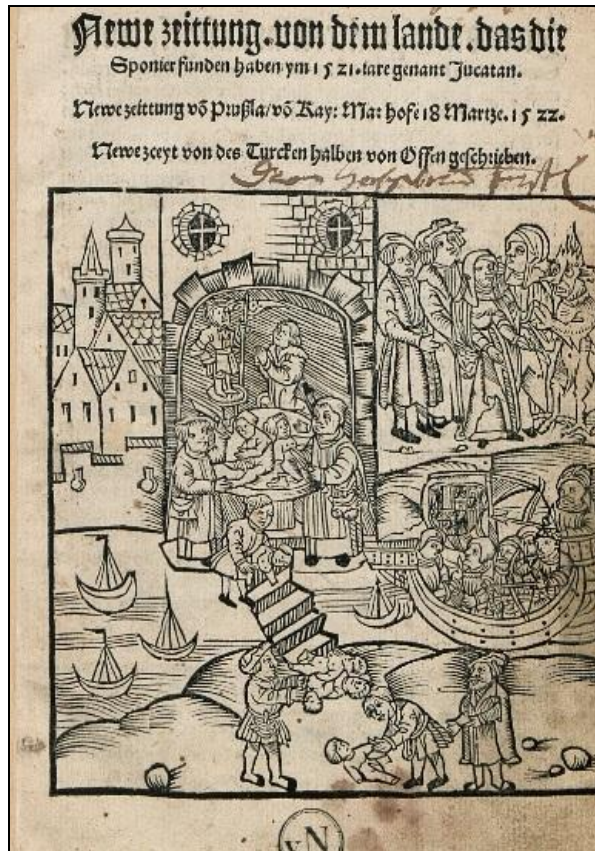 Newe zeittung. von dem lande. das die
Sponier funden haben ym 1521. iare genant Jucatan.
Newe zeittung vō Prußla/ vō Kay: Mai hofe 18 Martze. 1522.
Newe zceyt von des Turcken halben von Offen geschrieben.
vN